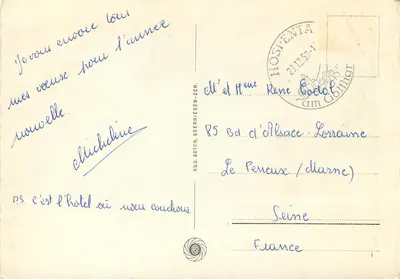 Je vous envoie tous
mes vœux pour l'année
nouvelle.
Micheline
P.S C'est l'hôtel où nous couchons.
HOSPENTAL
21.12.59-1
am Gotthard
M et Mme René
85 Bd. d'Alsace-Lorraine
Le Perreux (Marne)
Seine
France